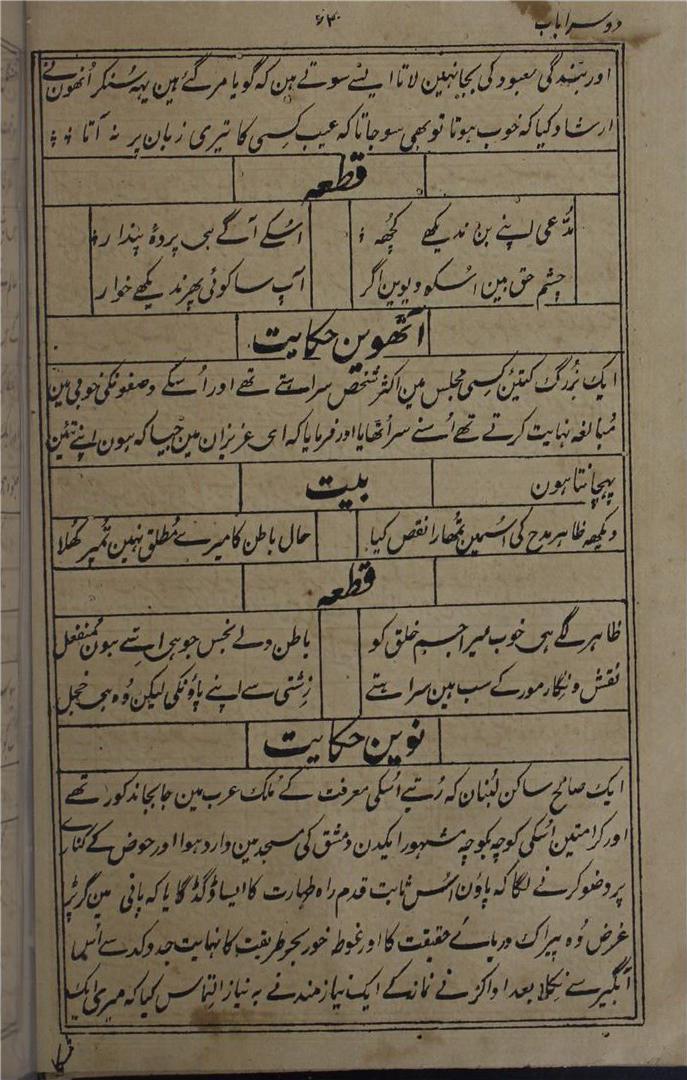 دوسرا باب
۶۳
اور بندگی معبود کی بجا نہین لاتا ایسے سوتے ہین کہ گویا مر گئے ہین یہہ سُنکر اُنھون نے
ارشاد کیا کہ خوب ہوتا تو بھی سو جاتا کہ عیب کسی کا تیری زبان پر نہ آتا
قطعہ
مُدّعی اپنے بِن ندیکھے کچھہ
اسکے آگے ہی پردۂ پندار
چشم حق بین اسکو دیوین اگر
آپ سا کوئی پھر ندیکھے خوار
آٹھوین حکایت
ایک بزرگ کتئین کسی مجلس مین اکثر شخص سراہتے تھے اور اُسکے وصفونکی خوبی مین
مُبالغہ نہایت کرتے تھے اُسنے سر اُٹھایا اور فرمایا کہ ای عزیزان مین جیسا کہ ہون اپنے تئین
پہچانتا ہون
بیت
دیکھہ ظاہر مدح کی اسمین تمُھارا نقص کیا
حال باطن کا میرے مُطلق نہین تُمپر کُھلا
قطعہ
ظاہر گے ہی خوب میرا جسم خلق کو
باطن ولے نجس جو ہی اِتسے ہون مُنفعل
نقش و نگار مور کے سب ہین سراہتے
زِشتی سے اپنے پاؤنکی لیکن وُہ ہی خجل
نوین حکایت
ایک صالح ساکن لُبنان کہ رُتبے اُسکی معرفت کے مُلک عرب مین جابجا مذکور تھے
اور کرامتین اُسکی کوچہ بکوچہ مشہور ایکدن دمشق کی مسجد مین وارد ہوا اور حوض کے کنارے
پر وضو کرنے لگا کہ پاؤن اُس ثابت قدم راہ طہارت کا ایسا ڈگڈگایا کہ پانی مین گر پڑا
غرض وُہ پیراک دریائے حقیقت کا اور غوطہ خور بحر طریقت کا نہایت جد و کد سے اُس
آبگیر سے نِکلا بعد ادا کرنے نماز کے ایک نیازمند نے بہ نیاز التماس کیا کہ میری ایک